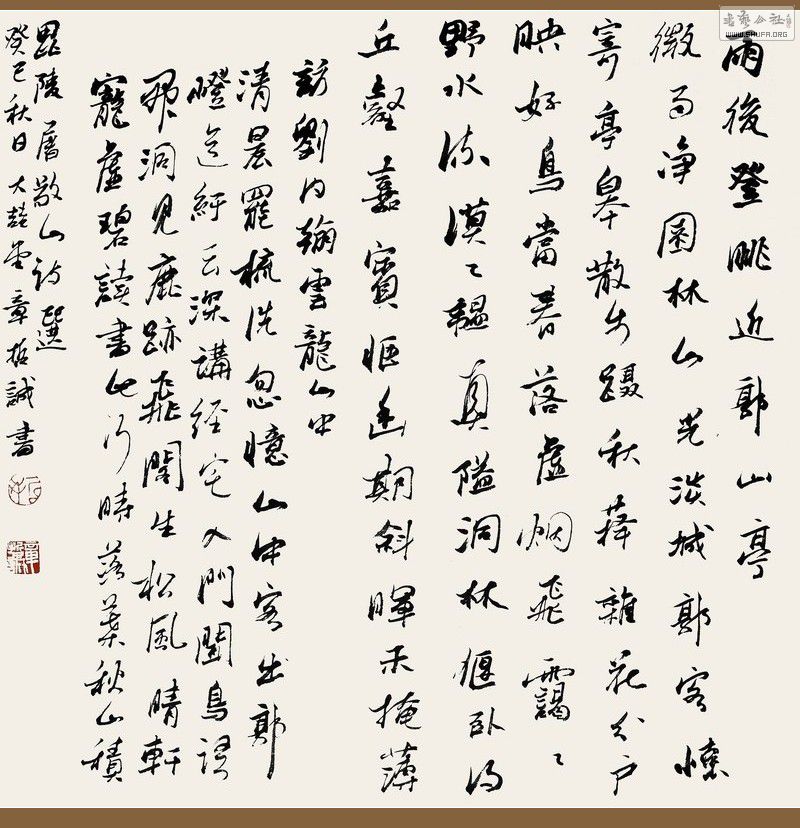 雨後登眺近郭山亭
微雨净園林山光淡城郭客懷
寄亭皋散步躡秋蘀雜花分户
映好鳥當落虛烟飛靄〻
野水流漠〻韞真隘洞林偃卧得
丘壑嘉賓愜幽期斜暉未掩薄
訪劉内翰雲龍山中
清晨罷梳洗忽憶山中客出郭
磴迳紆云深講經宅入門聞鳥語
洞見鹿跡飛閣生松風晴軒
寵虛碧讀書此何時落葉秋山積
毘陵屠敬山詩選
癸巳秋日大堂章哲誠書
書藝公社
WWW.SHUFA.ORG